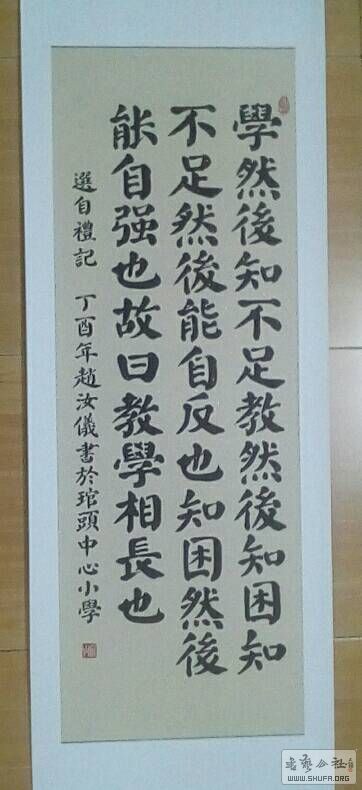 學然後知不足教然後知困知
不足然後能自反也知困然後
能自强也故曰教學相長也
選自禮記 丁酉年趙汝儀書於琯頭中心小學
WWW.SHUFA.ORG